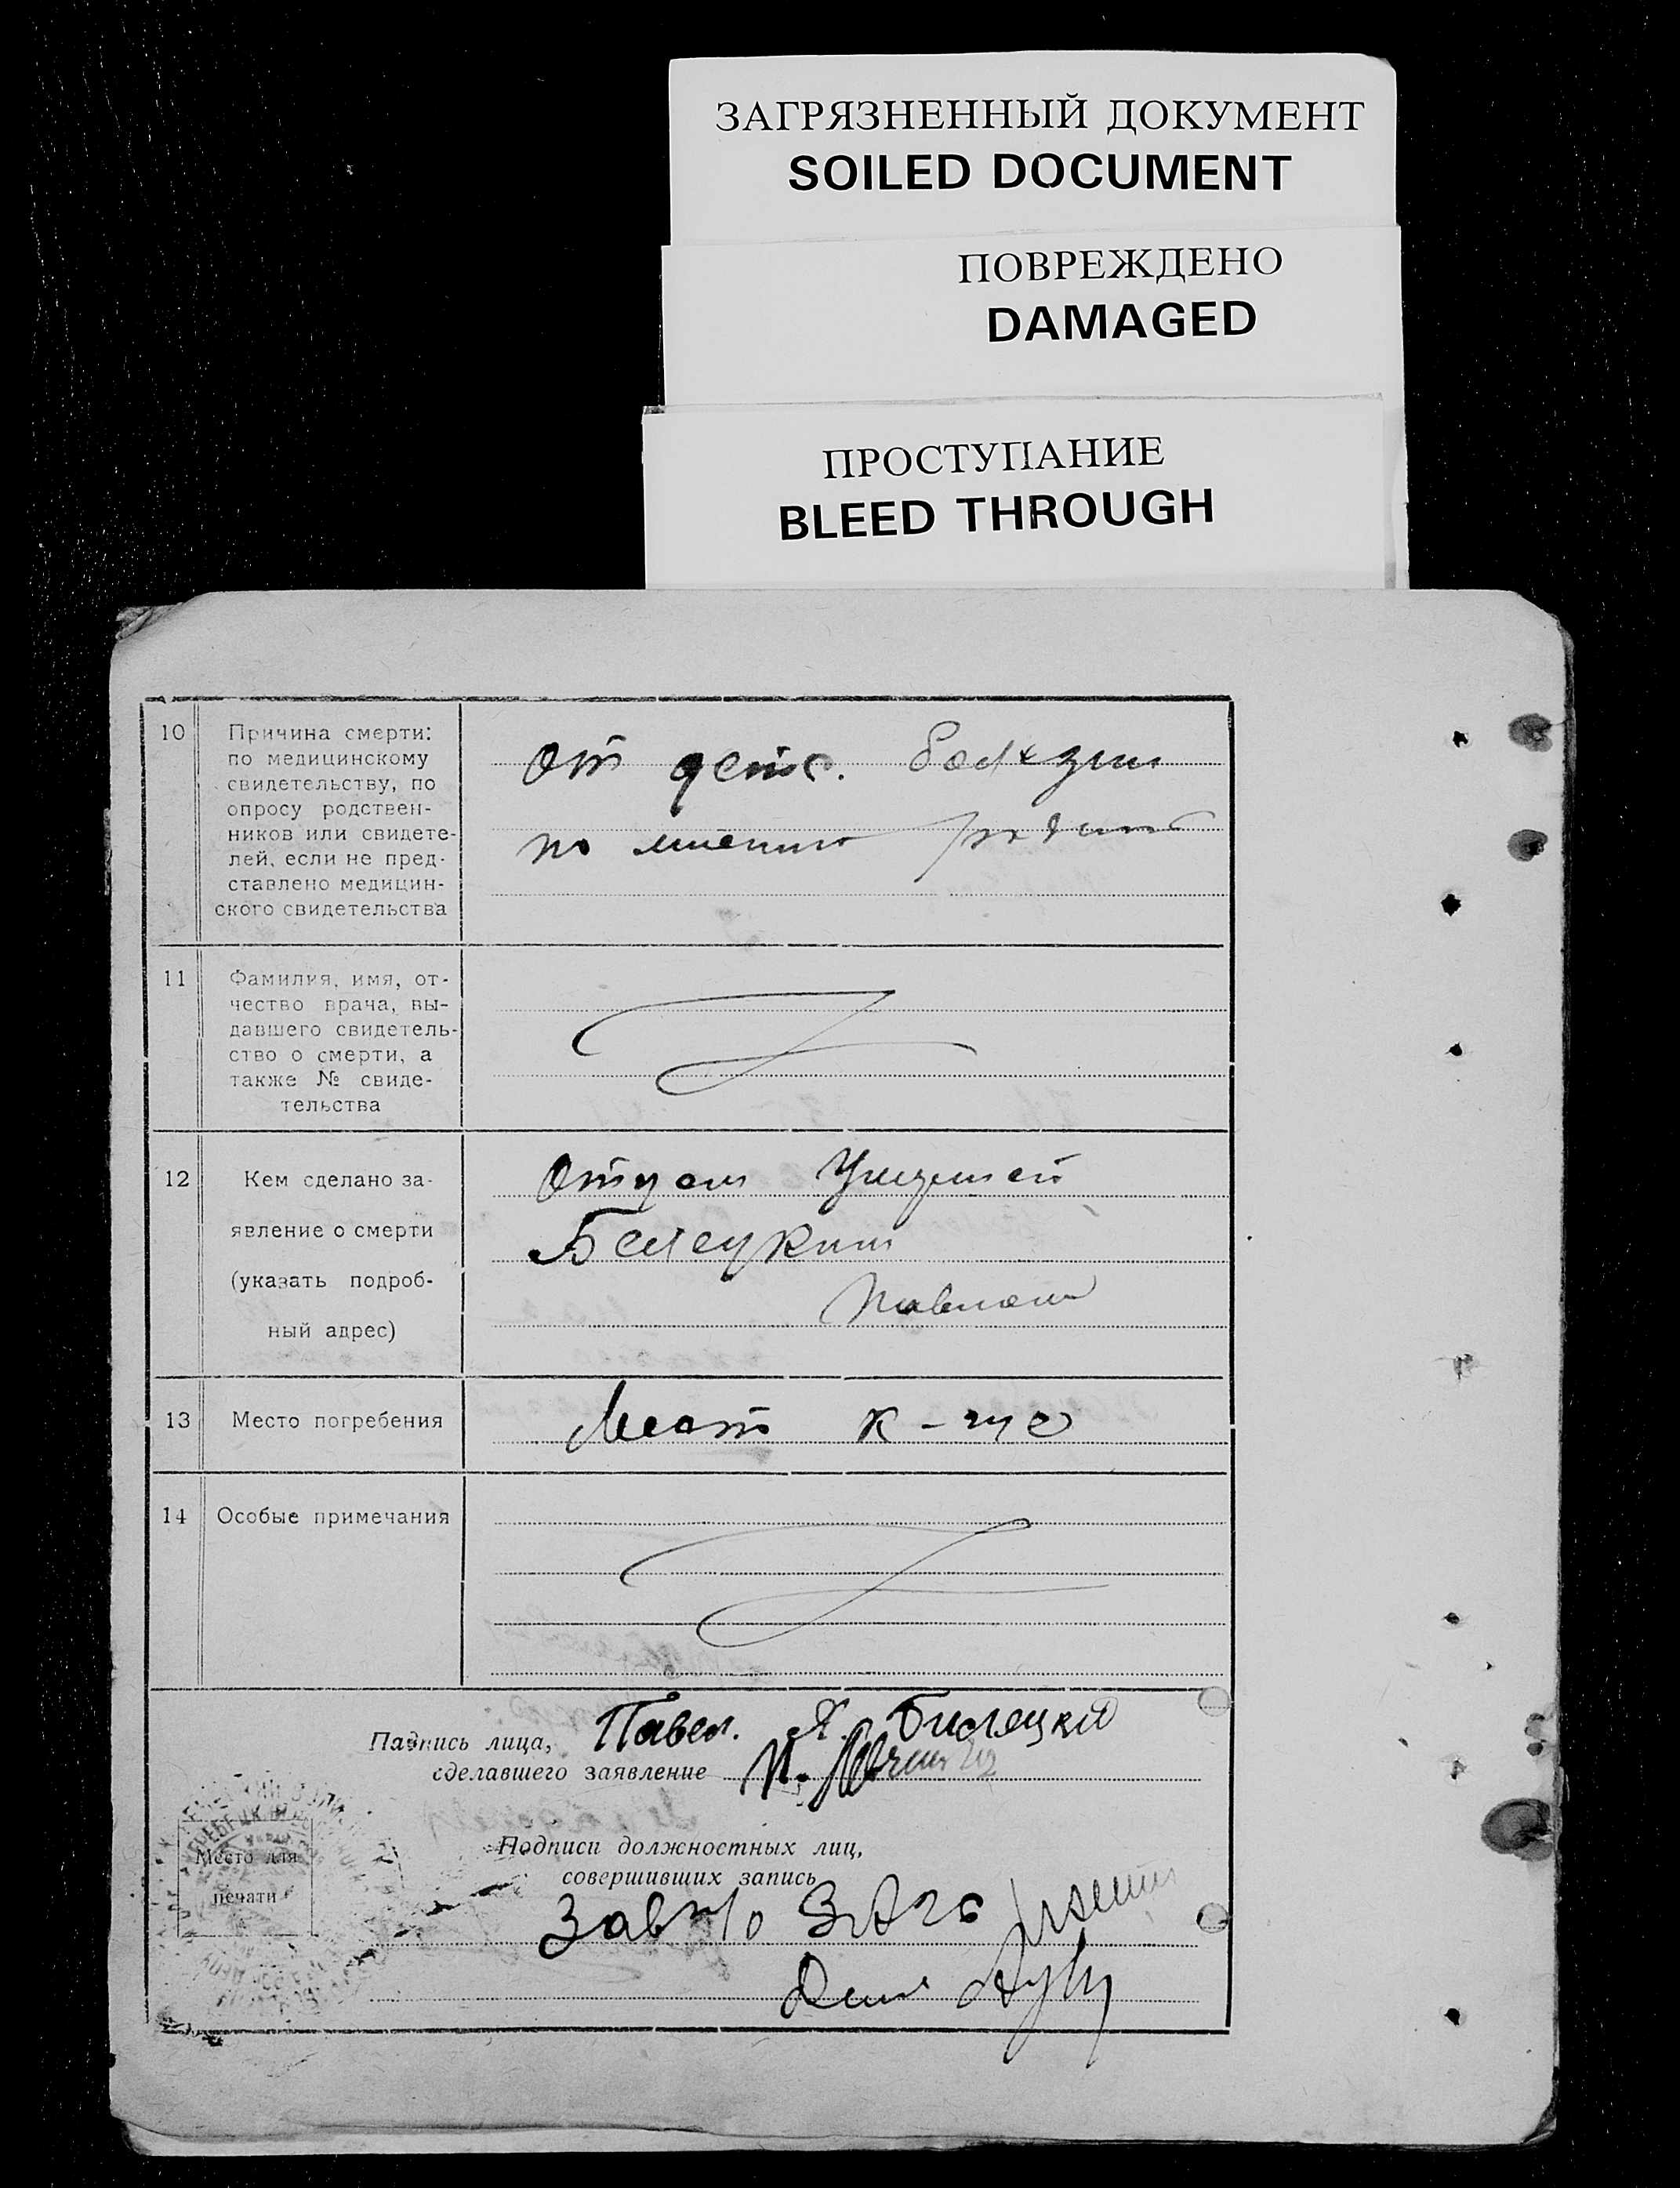 ЗАГРЯЗНЕННЫЙ ДОКУМЕНТ
SOILED DOCUMENT
ПОВРЕЖДЕНО
DAMAGED
ПРОСТУПАНИЕ
BLEED THROUGH
10
Причина смерти:
по медицинскому
свидетельству, по
опросу родствен-
ников или свидете-
лей, если не пред-
ставлено медицин-
ского свидетельства
От детс. болезни
по мнению
11
Фамилия, имя, от-
чество врача, вы-
давшего свидетель-
ство о смерти, а
также № свиде-
тельства
12
Кем сделано за-
явление о смерти
(указать подроб-
ный адрес)
Отцом Умершей
Белецким
Павлом
13
Место погребения
Местн к-ще
14
Особые примечания
Подпись лица,
сделавшего заявление
Павел. Я. Билецкий
Подписи должностных лиц,
совершивших запись
Место для
печати
Зав ЗАГС